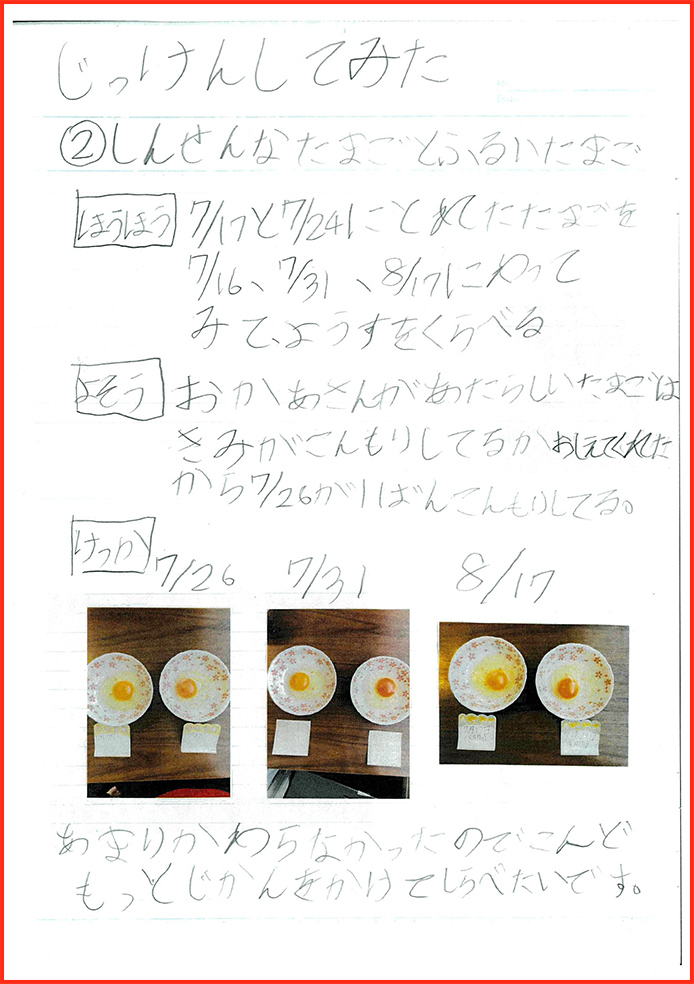 じっけんしてみた
②しんせんなたまごとふるいたまご
ほうほう 7/17と7/24にとめてたたまごを
7/16、7/31、8/17にわって
みて、ようすをくらべる
よそう おかあさんがあたらしいたまごは
きみがこんもりしてるかおしえてくれた
から7/26がいばんこんもりしてる。
けっか 7/26 7/31 8/17
あまりかわらなかったのでこんど
もっとじかんをかけてしらべたいです。